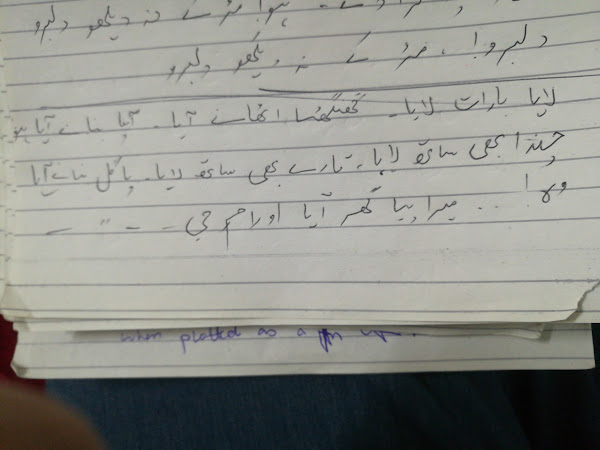 ہوا مڑ کے نہ دیکھو دلبرو
دلبرو! . مڑ کے نہ دیکھو دلبرو
لایا بارات لایا۔ گھونگھٹ اٹھانے آیا۔ آیا
چندا بھی ساتھ لایا، تارے بھی ساتھ لایا۔ پائل آیا
میرا پیا گھر آیا او رام جی - - " -
when plotted as a fn